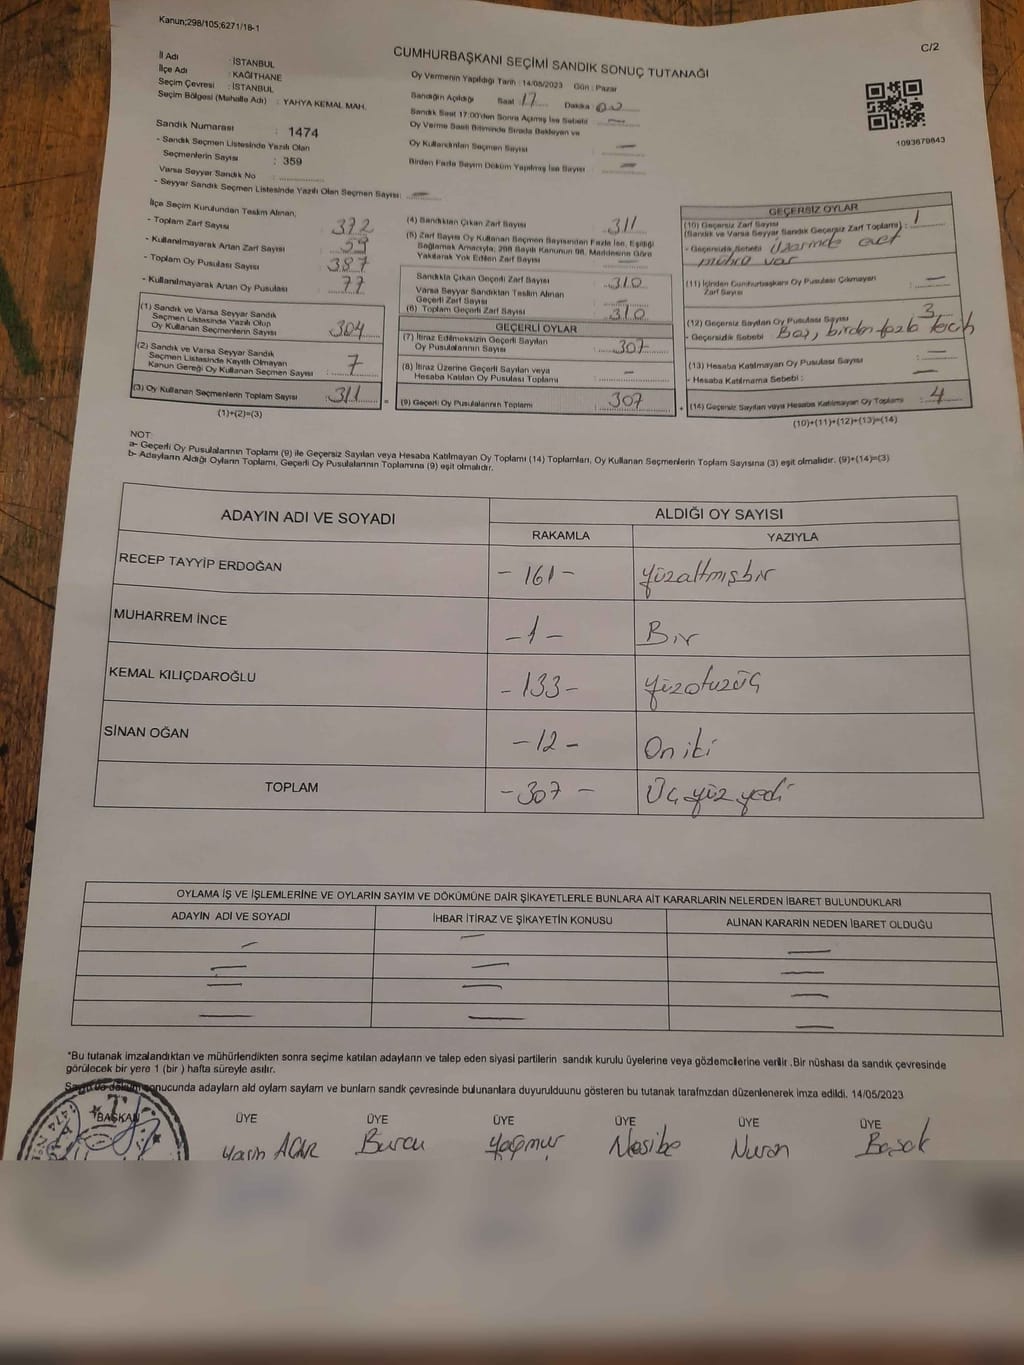 Kanun;298/105;6271/18-1
C/2
CUMHURBAŞKANI SEÇİMİ SANDIK SONUÇ TUTANAĞI
İl Adı : İSTANBUL
İlçe Adı : KAĞITHANE
Seçim Çevresi : İSTANBUL
Seçim Bölgesi (Mahalle Adı) : YAHYA KEMAL MAH.
Oy Vermenin Yapıldığı Tarih : 14/05/2023 Gün : Pazar
Sandığın Açıldığı Saat 17 Dakika 00
Sandık Saat 17:00'den Sonra Açılmış İse Sebebi —
Oy Verme Saati Bitiminde Sırada Bekleyen ve
Oy Kullandırılan Seçmen Sayısı —
Birden Fazla Sayım Döküm Yapılmış İse Sayısı —
1093679843
Sandık Numarası : 1474
- Sandık Seçmen Listesinde Yazılı Olan
Seçmenlerin Sayısı : 359
Varsa Seyyar Sandık No :
- Seyyar Sandık Seçmen Listesinde Yazılı Olan Seçmen Sayısı: —
İlçe Seçim Kurulundan Teslim Alınan;
- Toplam Zarf Sayısı : 372
- Kullanılmayarak Artan Zarf Sayısı : 59
- Toplam Oy Pusulası Sayısı : 387
- Kullanılmayarak Artan Oy Pusulası : 77
(1) Sandık ve Varsa Seyyar Sandık
Seçmen Listesinde Yazılı Olup
Oy Kullanan Seçmenlerin Sayısı : 304
(2) Sandık ve Varsa Seyyar Sandık
Seçmen Listesinde Kayıtlı Olmayan
Kanun Gereği Oy Kullanan Seçmen Sayısı : 7
(3) Oy Kullanan Seçmenlerin Toplam Sayısı : 311 =
(1)+(2)=(3)
(4) Sandıktan Çıkan Zarf Sayısı : 311
(5) Zarf Sayısı Oy Kullanan Seçmen Sayısından Fazla İse, Eşitliği
Sağlamak Amacıyla; 298 Sayılı Kanunun 98. Maddesine Göre
Yakılarak Yok Edilen Zarf Sayısı : —
Sandıkta Çıkan Geçerli Zarf Sayısı : 310
Varsa Seyyar Sandıktan Teslim Alınan
Geçerli Zarf Sayısı : —
(6) Toplam Geçerli Zarf Sayısı : 310
GEÇERLİ OYLAR
(7) İtiraz Edilmeksizin Geçerli Sayılan
Oy Pusulalarının Sayısı : 307
(8) İtiraz Üzerine Geçerli Sayılan veya
Hesaba Katılan Oy Pusulası Toplamı : —
(9) Geçerli Oy Pusulalarının Toplamı : 307 +
GEÇERSİZ OYLAR
(10) Geçersiz Zarf Sayısı
(Sandık ve Varsa Seyyar Sandık Geçersiz Zarf Toplamı) : 1
- Geçersizlik Sebebi : üzerinde
mührü var
(11) İçinden Cumhurbaşkanı Oy Pusulası Çıkmayan
Zarf Sayısı : —
(12) Geçersiz Sayılan Oy Pusulası Sayısı : 3
- Geçersizlik Sebebi : Boş, birden fazla tercih
(13) Hesaba Katılmayan Oy Pusulası Sayısı : —
- Hesaba Katılmama Sebebi : —
(14) Geçersiz Sayılan veya Hesaba Katılmayan Oy Toplamı : 4
(10)+(11)+(12)+(13)=(14)
NOT:
a- Geçerli Oy Pusulalarının Toplamı (9) ile Geçersiz Sayılan veya Hesaba Katılmayan Oy Toplamı (14) Toplamları, Oy Kullanan Seçmenlerin Toplam Sayısına (3) eşit olmalıdır. (9)+(14)=(3)
b- Adayların Aldığı Oyların Toplamı, Geçerli Oy Pusulalarının Toplamına (9) eşit olmalıdır.
ADAYIN ADI VE SOYADI
ALDIĞI OY SAYISI
RAKAMLA YAZIYLA
RECEP TAYYİP ERDOĞAN - 161 - yüzaltmışbir
MUHARREM İNCE - 1 - Bir
KEMAL KILIÇDAROĞLU - 133 - yüzotuzüç
SİNAN OĞAN - 12 - On iki
TOPLAM - 307 - Üç yüz yedi
OYLAMA İŞ VE İŞLEMLERİNE VE OYLARIN SAYIM VE DÖKÜMÜNE DAİR ŞİKAYETLERLE BUNLARA AİT KARARLARIN NELERDEN İBARET BULUNDUKLARI
ADAYIN ADI VE SOYADI İHBAR İTİRAZ VE ŞİKAYETİN KONUSU ALINAN KARARIN NEDEN İBARET OLDUĞU
*Bu tutanak imzalandıktan ve mühürlendikten sonra seçime katılan adayların ve talep eden siyasi partilerin sandık kurulu üyelerine veya gözlemcilerine verilir .Bir nüshası da sandık çevresinde
görülecek bir yere 1 (bir ) hafta süreyle asılır.
Sayım ve döküm sonucunda adayların ald oyların sayları ve bunların sandk çevresinde bulunanlara duyurulduunu gösteren bu tutanak tarafmzdan düzenlenerek imza edildi. 14/05/2023
BAŞKAN ÜYE ÜYE ÜYE ÜYE ÜYE ÜYE
Yasin ACAR Burcu Yağmur Nesibe Nuran Başak
1474